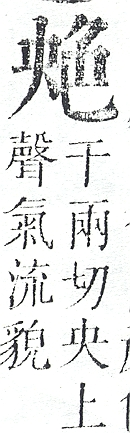 䒋
于兩切央上
聲氣流貌